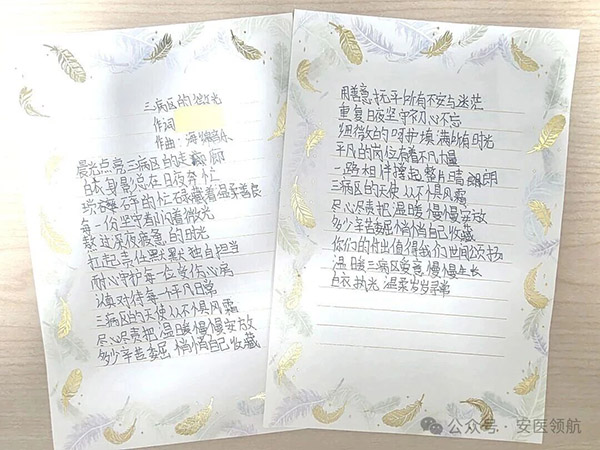 三病区的微光
作词
作曲：海绵音乐
晨光点亮三病区的走廊
白衣身影总在日夜奔忙
琐碎的忙碌藏着温柔善良
每一份坚守都闪着微光
熬过深夜疲惫的时光
扛起责任默默独自担当
耐心守护每一位受伤心房
认真对待每一个平凡日常
三病区的天使从不惧风霜
尽心尽责把温暖慢慢安放
多少辛苦委屈悄悄自己收藏
用善意抚平所有不安与迷茫
重复日夜坚守初心不忘
细微的呵护填满所有时光
平凡的岗位有着不凡力量
一路相伴撑起整片晴朗
三病区的天使从不惧风霜
尽心尽责把温暖慢慢安放
多少辛苦委屈悄悄自己收藏
你们的付出值得我们世间颂扬
温暖三病区爱意慢慢生长
白衣执光温柔岁岁寻常
公众号·安医领航